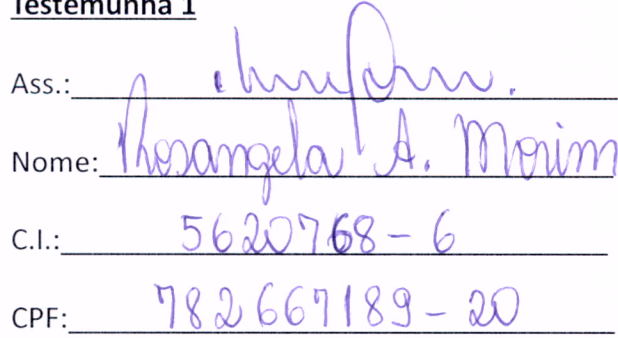 Testemunha 1
Ass.:
Nome: Rosangela A. Morim
C.I.: 5620768-6
CPF: 782667189-20